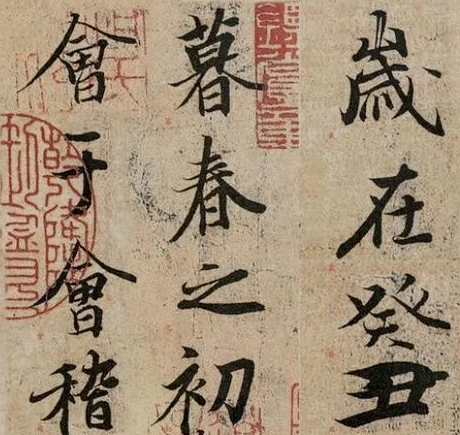 歲在癸丑
暮春之初
會于會稽